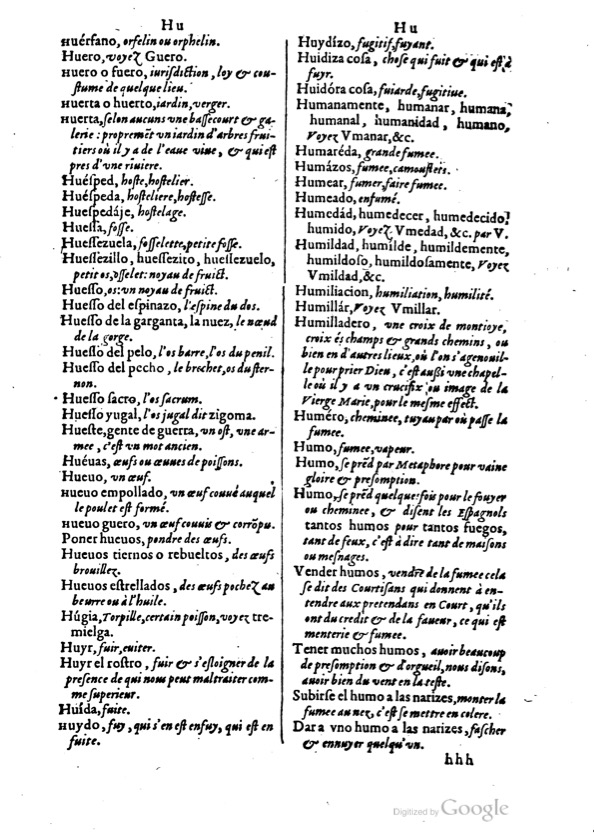 Hu
Huérfano, orfelin ou orphelin.
Huero, voyez Guero.
Huero o fuero, iurisdiction, loy & cou-
ſtume de quelque lieu.
Huerta o huerto, iardin, verger.
Huerta, ſelon aucuns vne baſſecourt & ga-
lerie : propremẽt vn iardin d'arbres frui-
tiers où il y a de l'eaue viue, & qui eſt
pres d'vne riuiere.
Hueſped, hoſte, hoſtelier.
Hueſpeda, hoſteliere, hoſteſſe.
Hueſpedáje, hoſtelage.
Hueſſa, foſſe.
Hueſſezuela, foſſelette, petite foſſe.
Hueſſezillo, hueſſezito, hueſſezuelo,
petit os, oſſelet: noyau de fruict.
Hueſſo, os: vn noyau de fruict.
Hueſſo del eſpinazo, l'eſpine du dos.
Hueſſo de la garganta, la nuez, le nœud
de la gorge.
Hueſſo del pelo, l'os barre, l'os du penil.
Hueſſo del pecho, le brechet, os du ſter-
non.
Hueſſo ſacro, l'os ſacrum.
Hueſſo yugal, l'os jugal dit zigoma.
Hueſte, gente de guerra, vn oſt, vne ar-
mee, c'eſt vn mot ancien.
Huéuas, œufs ou œuues de poiſſons.
Hueuo, vn œuf.
Hueuo empollado, vn œuf couué auquel
le poulet eſt formé.
Hueuo guero, vn œuf couuis & corrõpu.
Poner hueuos, pondre des œufs.
Hueuos tiernos o rebueltos, des œufs
brouillez.
Hueuos eſtrellados, des œufs pochez au
beurre ou à l'huile.
Húgia, Torpille, certain poiſſon, voyez tre-
mielga.
Huyr, fuir, euiter.
Huyr el roſtro, fuir & s'eſloigner de la
preſence de qui nous peut maltraiter com-
me ſuperieur.
Huída, fuite.
Huydo, fuy, qui s'en eſt enfuy, qui eſt en
fuite.
Hu
Huydízo, fugitif, fuyant.
Huidiza coſa, choſe qui fuit & qui eſt à
fuyr.
Huidóra coſa, fuiarde, fugitiue.
Humanamente, humanar, humana,
humanal, humanidad, humano,
Voyez Vmanar, &c.
Humaréda, grande fumee.
Humázos, fumee, camouflets.
Humear, fumer, faire fumee.
Humeado, enfumé.
Humedád, humedecer, humedecido,
humido, Voyez Vmedad, &c. par V.
Humildad, humilde, humildemente,
humildoſo, humildoſamente, Voyez
Vmildad, &c.
Humiliacion, humiliation, humilité.
Humillár, Voyez Vmillar.
Humilladero, vne croix de montioye,
croix és champs & grands chemins, ou
bien en d'autres lieux, où l'on s'agenouil-
le pour prier Dieu, c'eſt auſſi vne chapel-
le où il y a vn crucifix ou image de la
Vierge Marie, pour le meſme effect.
Huméro, cheminee, tuyau par où paſſe la
fumee.
Humo, fumee, vapeur.
Humo, ſe prẽd par Metaphore pour vaine
gloire & preſomption.
Humo, ſe prẽd quelquefois pour le fouyer
ou cheminee, & diſent les Eſpagnols
tantos humos pour tantos fuegos,
tant de feux, c'eſt à dire tant de maiſons
ou meſnages.
Vender humos, vendre de la fumee cela
ſe dit des Courtiſans qui donnent à en-
tendre aux pretendans en Court, qu'ils
ont du credit & de la faueur, ce qui eſt
menterie & fumee.
Tener muchos humos, auoir beaucoup
de preſomption & d'orgueil, nous diſons,
auoir bien du vent en la teſte.
Subirſe el humo a las narizes, monter la
fumee au nez, c'eſt ſe mettre en colere.
Dar a vno humo a las narizes, faſcher
& ennuyer quelqu'vn.
hhh
Digitized by Google